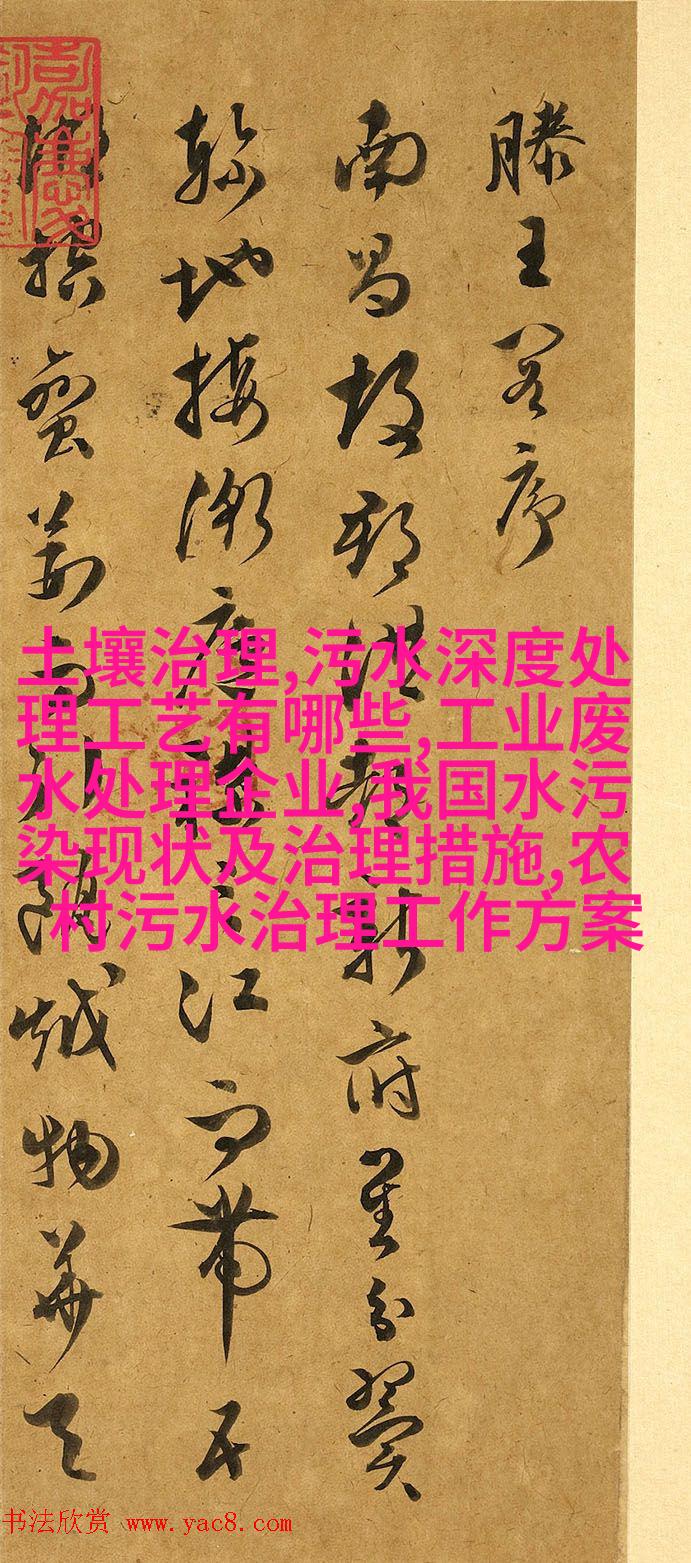 滕王閣序
南昌故郡洪都新府星分翼
軫地接衡廬襟三江而帶五
湖控蠻荊而引甌越物華天
土壤治理,污水深度处
理工艺有哪些,工业废
水处理企业,我国水污
染现状及治理措施,农
村污水治理工作方案
书法欣赏 www.yac8.com